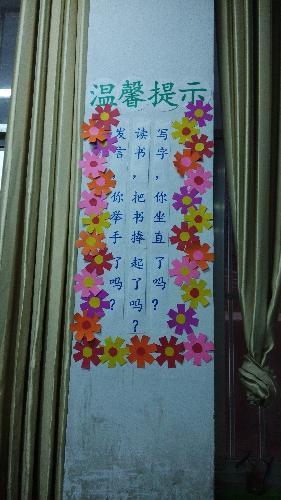 温馨提示
写字，你坐直了吗？
读书，把书捧起了吗？
发言，你举手了吗？